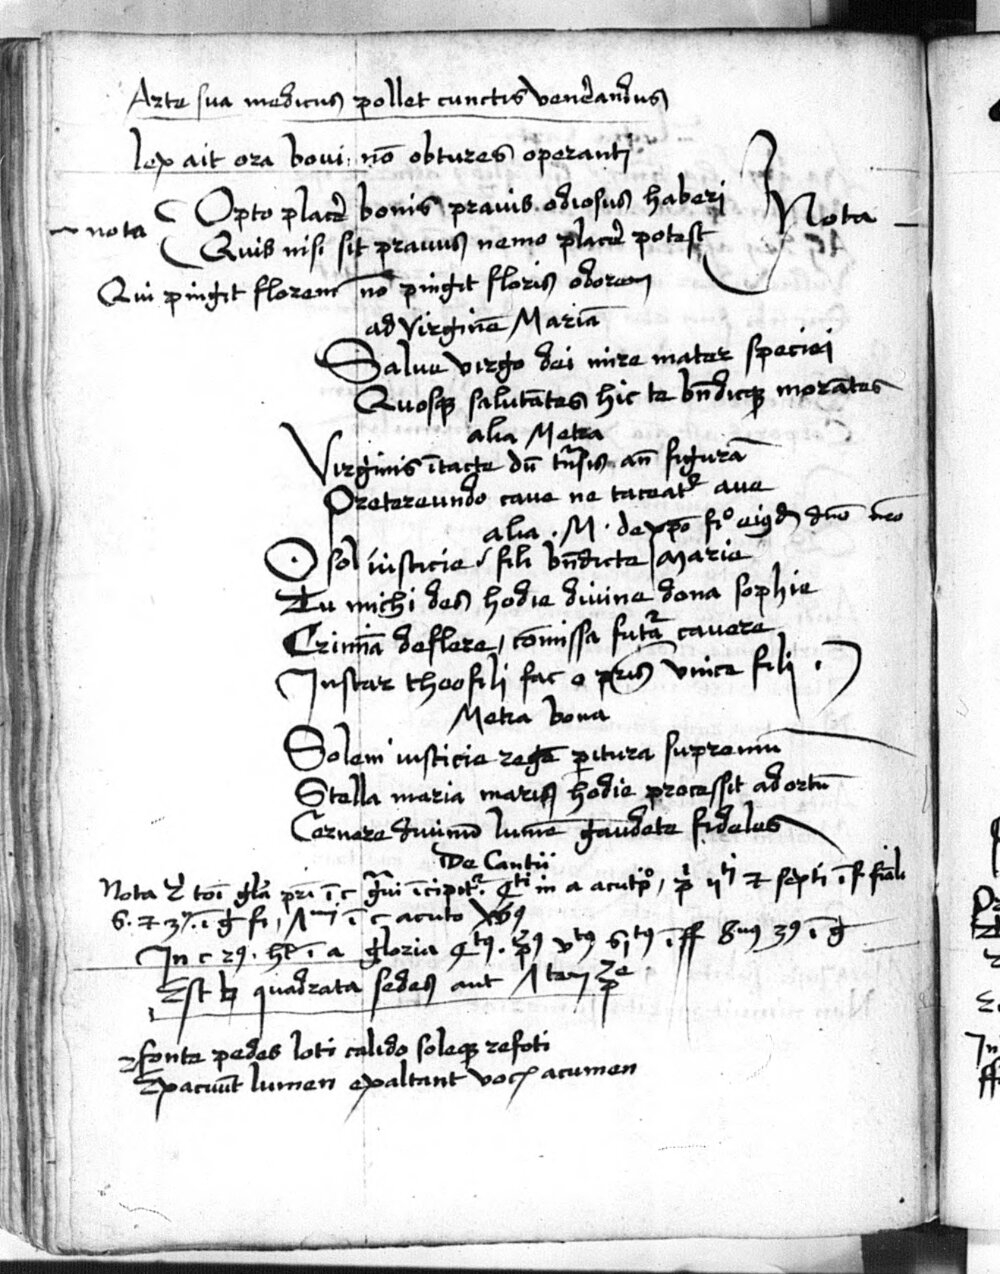 Arte sua medicus pollet cunctis venerandus
lex ait ora boui nō obtures operanti
nota Opto placer̄ bonis prauis odiosus haberi Nota
Quib nisi sit prauus nemo placer̄ potest
Qui pingit florem nō pingit floris odorem
ad Virginē Mariā
Salue virgo dei mire mater speciei
Quosq salutātes hic te bn̄dicq morātes
alia Metra
Virginis ītacte dū trāsis an̄ figurā
Pretereundo caue ne taceatr aue
alia . M . de xpō fio eiusd
O sol iusticie fili bn̄dicte Marie
Tu michi des hodie diuine dona sophie
Crimīa deflere / cōmissa futura cauere
Instar theofili fac o pris vnice fili .
Metra bona
Solem iusticie regē paritura supremu
Stella maria maris hodie processit ad ortū
Cernere diuinū lumē gaudete fideles
De Cantu
Nota toī glā in a acut septi
6. 7 acuto
In c a gloria
Est ♮ quadrata sedes aut
fonte pedes loti calido soleq refoti
Exacuūt lumen exaltant vocis acumen